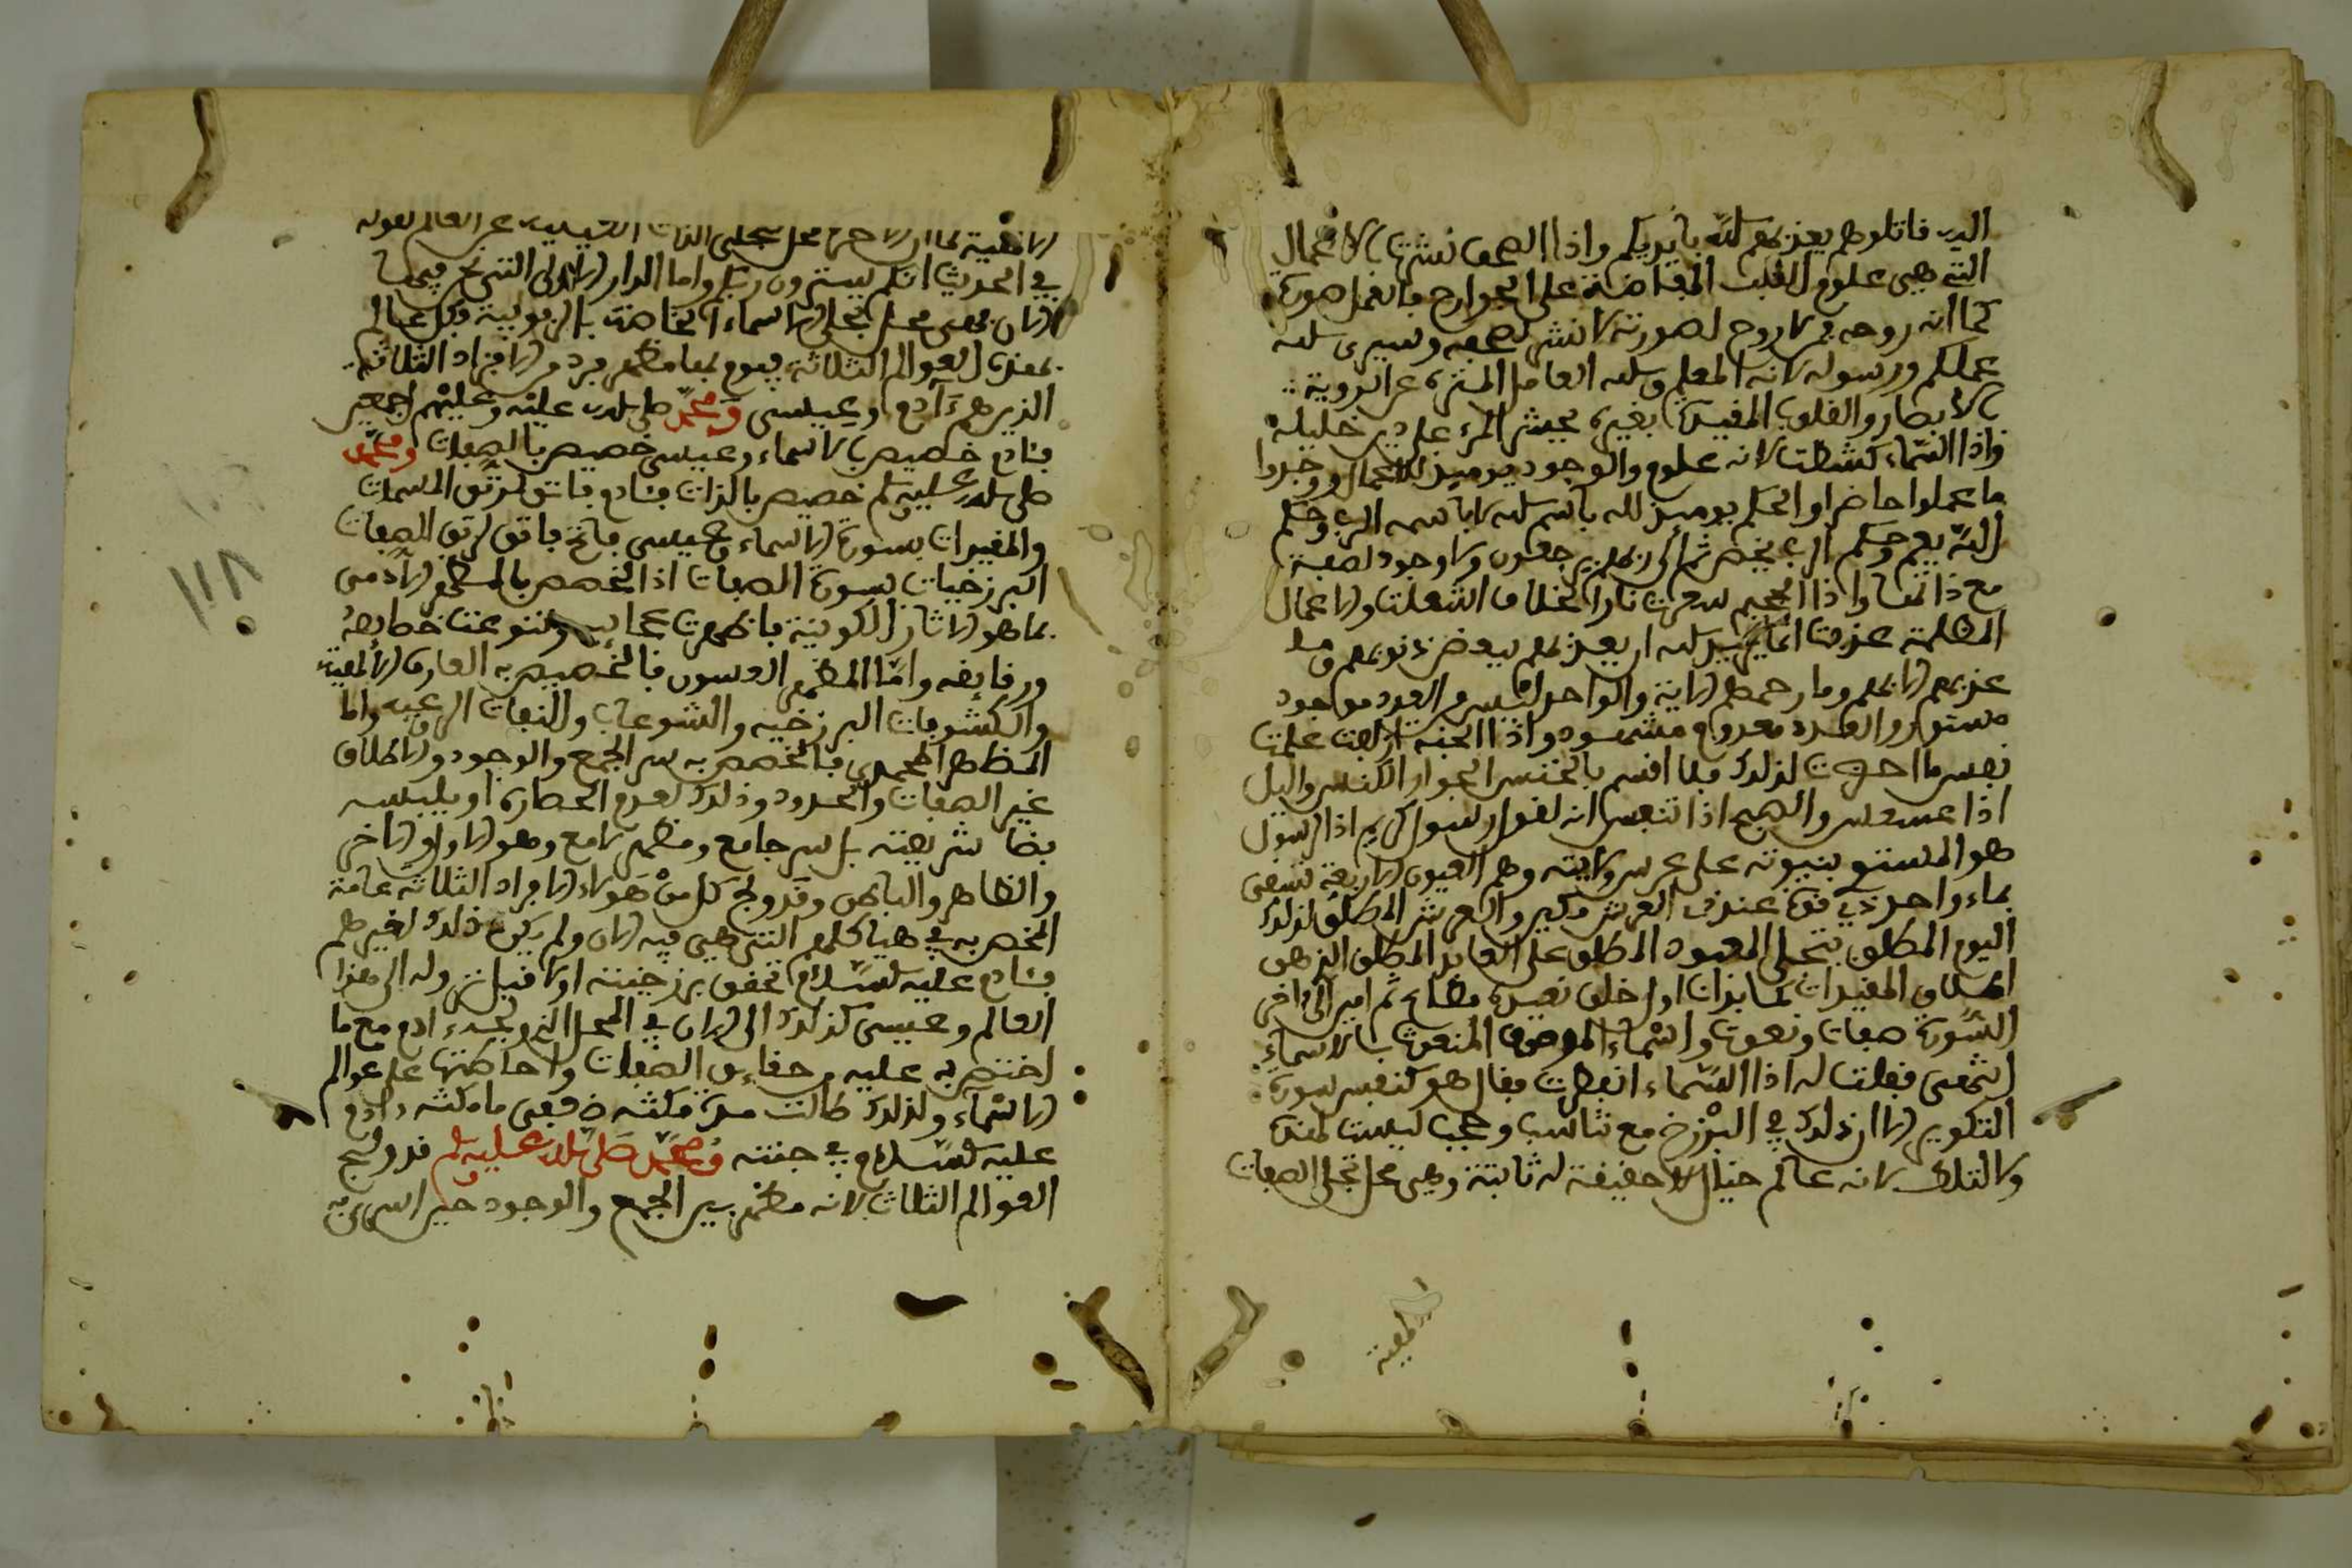 الدين قاتلوهم يعذبهم الله بأيديكم واذا الصحف نشرت بالاعمال
التي هي علوم القلب المفاضة على الجوارح فالعمل صورة
كما انه روحه فلا روح لصورته لا نشر لصحيفه وسيرى الله
عملكم ورسوله لانه المعلم والله العامل المنزه عن الروية
بالابصار والقلوب المقيدة بغيره يحشر المرء على دين خليله
واذا السماء كشطت لانه علوم والوجود يومئذ للاعمال ووجدوا
ما عملوا حاضرا والحكم يومئذ لله باسم الله لا باسمه الرب وحكم
الله يعم وحكم الرب يخص ثم الى ربهم يرجعون ولا وجود لصفة
مع ذاتها واذا الجحيم سعرت نار الخلاف اشتعلت والاعمال
المظلمة عذبت انما يريد الله ان يعذبهم ببعض ذنوبهم فما
عذبهم الا بهم وما رحمهم الا به والواحد ليس من العدد موجود
مستور والعدد معدوم مشهود واذا الجنة ازلفت علمت
نفس ما احضرت لذلك فلا اقسم بالخنس الجوار الكنس واليل
اذا عسعس والصبح اذا تنفس انه لقول رسول كريم اذ الرسول
هو المستو بنبوته على عرش ولايته وهم العيون الاربعة تسقى
بماء واحد ذي قوة عند ذي العرش مكين والعرش المطلق لذلك
اليوم المطلق بتجلي المعبود المطلق على العابد المطلق الذي هو
اطلاق المقيدات كما بدأت اول خلق نعيده مطاع ثم امين الى اخر
السورة صفات ونعوت واسماء للموصوف المنعوت بالاسماء
انتهى فقلت له اذا السماء انفطرت فقال هو كنفس سورة
التكوير الا ان ذلك في البرزخ مع تناسب وحجب ليست لهذه
ولا لتلك لانه عالم خيال لا حقيقة له ثابتة وهي محل تجلي الصفات
الحقية
الاخرة محل تجلي الذات الغنية عن العالم لقوله
في الحديث انكم سترون ربكم واما الدار الاولى التي نحن فيها
الان فهي محل تجلي الاسماء الخاصة بالربوبية فكل عالم
بهذه العوالم الثلاثة يقوم بها مظهر فرد من الافراد الثلاثة
الذين هم آدم وعيسى ومحمد صلى الله عليه وعليهم اجمعين
فآدم خصيص بالاسماء وعيسى خصيص بالصفات ومحمد
صلى الله عليه وسلم خصيص بالذات فآدم فاتق لرتق المسميات
والمقيدات بصورة الاسماء وعيسى فاتح فاتق لرتق الصفات
البرزخيات بصورة الصفات اذ الخصيص بالمظهر الآدمي
بما هو الاثار الكونية فاظهرت عجايبه وتنوعت خصايصه
ورقايقه واما المظهر العيسوي فالخصيص به المعارف الالهية
والكشوفات البرزخية والتنوعات والنفخات الروحية واما
المظاهر المحمدي فالخصيص به سر الجمع والوجود والاطلاق
عن الصفات والحدود وذلك لعدم انحصاره او بتلبسه
بقا شريعته بل سر جامع ومظهر لامع وهو الاول والاخر
والظاهر والباطن وقد ولج كل من هؤلاء الافراد الثلاثة عالمه
المختص به في هياكلهم التي هي فيه الان ولم يكن ذلك لغيرهم
فآدم عليه السلام تحقق ببرزخيته اولا قبل نزوله الى هذا
العالم وعيسى كذلك الى الان في المحل الذي كان به ادم مع ما
اختص به عليه من حقايق الصفات واحاطتها على عوالم
الاسماء ولذلك طالت مدة مكثه ضعفي ما مكثه ادم
عليه السلام في جنته ومحمد صلى الله عليه وسلم قد ولج
العوالم الثلاث لانه مظهر سر الجمع والوجود حين اسري به
١١٨